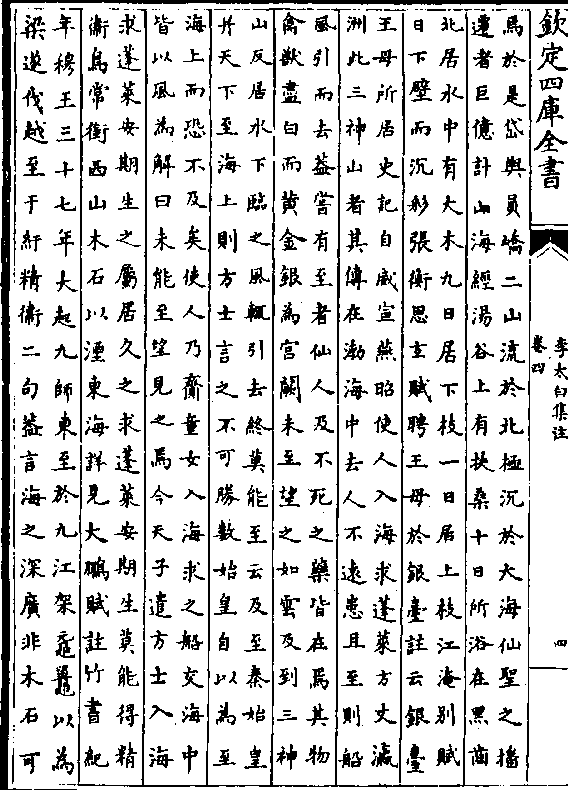 欽定四庫全書
李太白集注
卷四
四
馬於是岱輿員嶠二山流於北極沉於大海仙聖之播
遷者巨億計山海經湯谷上有扶桑十日所浴在黑齒
北居水中有大木九日居下枝一日居上枝江淹别賦
日下壁而沉彩張衡思玄賦聘王母於銀臺註云銀臺
王母所居史記自威宣燕昭使人入海求蓬萊方丈瀛
洲此三神山者其傳在渤海中去人不遠患且至則船
風引而去葢嘗有至者仙人及不死之藥皆在焉其物
禽獸盡白而黄金銀為宮闕未至望之如雲及到三神
山反居水下臨之風輒引去終莫能至云及至秦始皇
并天下至海上則方士言之不可勝數始皇自以為至
海上而恐不及矣使人乃齎童女入海求之船交海中
皆以風為解曰未能至望見之焉今天子遣方士入海
求蓬萊安期生之屬居久之求蓬萊安期生莫能得精
衛鳥常銜西山木石以湮東海詳見大鵬賦註竹書紀
年穆王三十七年大起九師東至於九江架黿鼉以為
梁遂伐越至于紆精衛二句葢言海之深廣非木石可